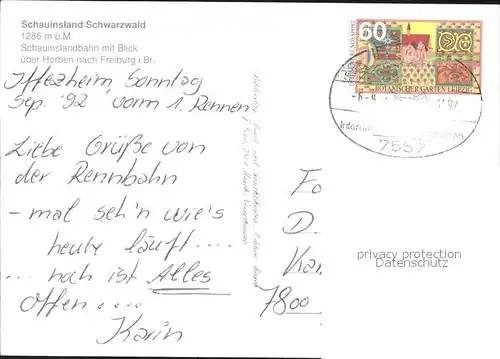 Schauinsland/Schwarzwald
1286 m ü.M.
Schauinslandbahn mit Blick
über Horben nach Freiburg i.Br.
Iffezheim, Sonntag
Sep. '92 vorm 1. Rennen
Liebe Grüße von
der Rennbahn
- mal seh'n wie's
heute läuft....
... noch ist Alles
offen....
Karin
60
BOTANISCHER GARTEN LEIPZIG
Internat
7557
Fo
D
Ka
7800
privacy protection
Datenschutz